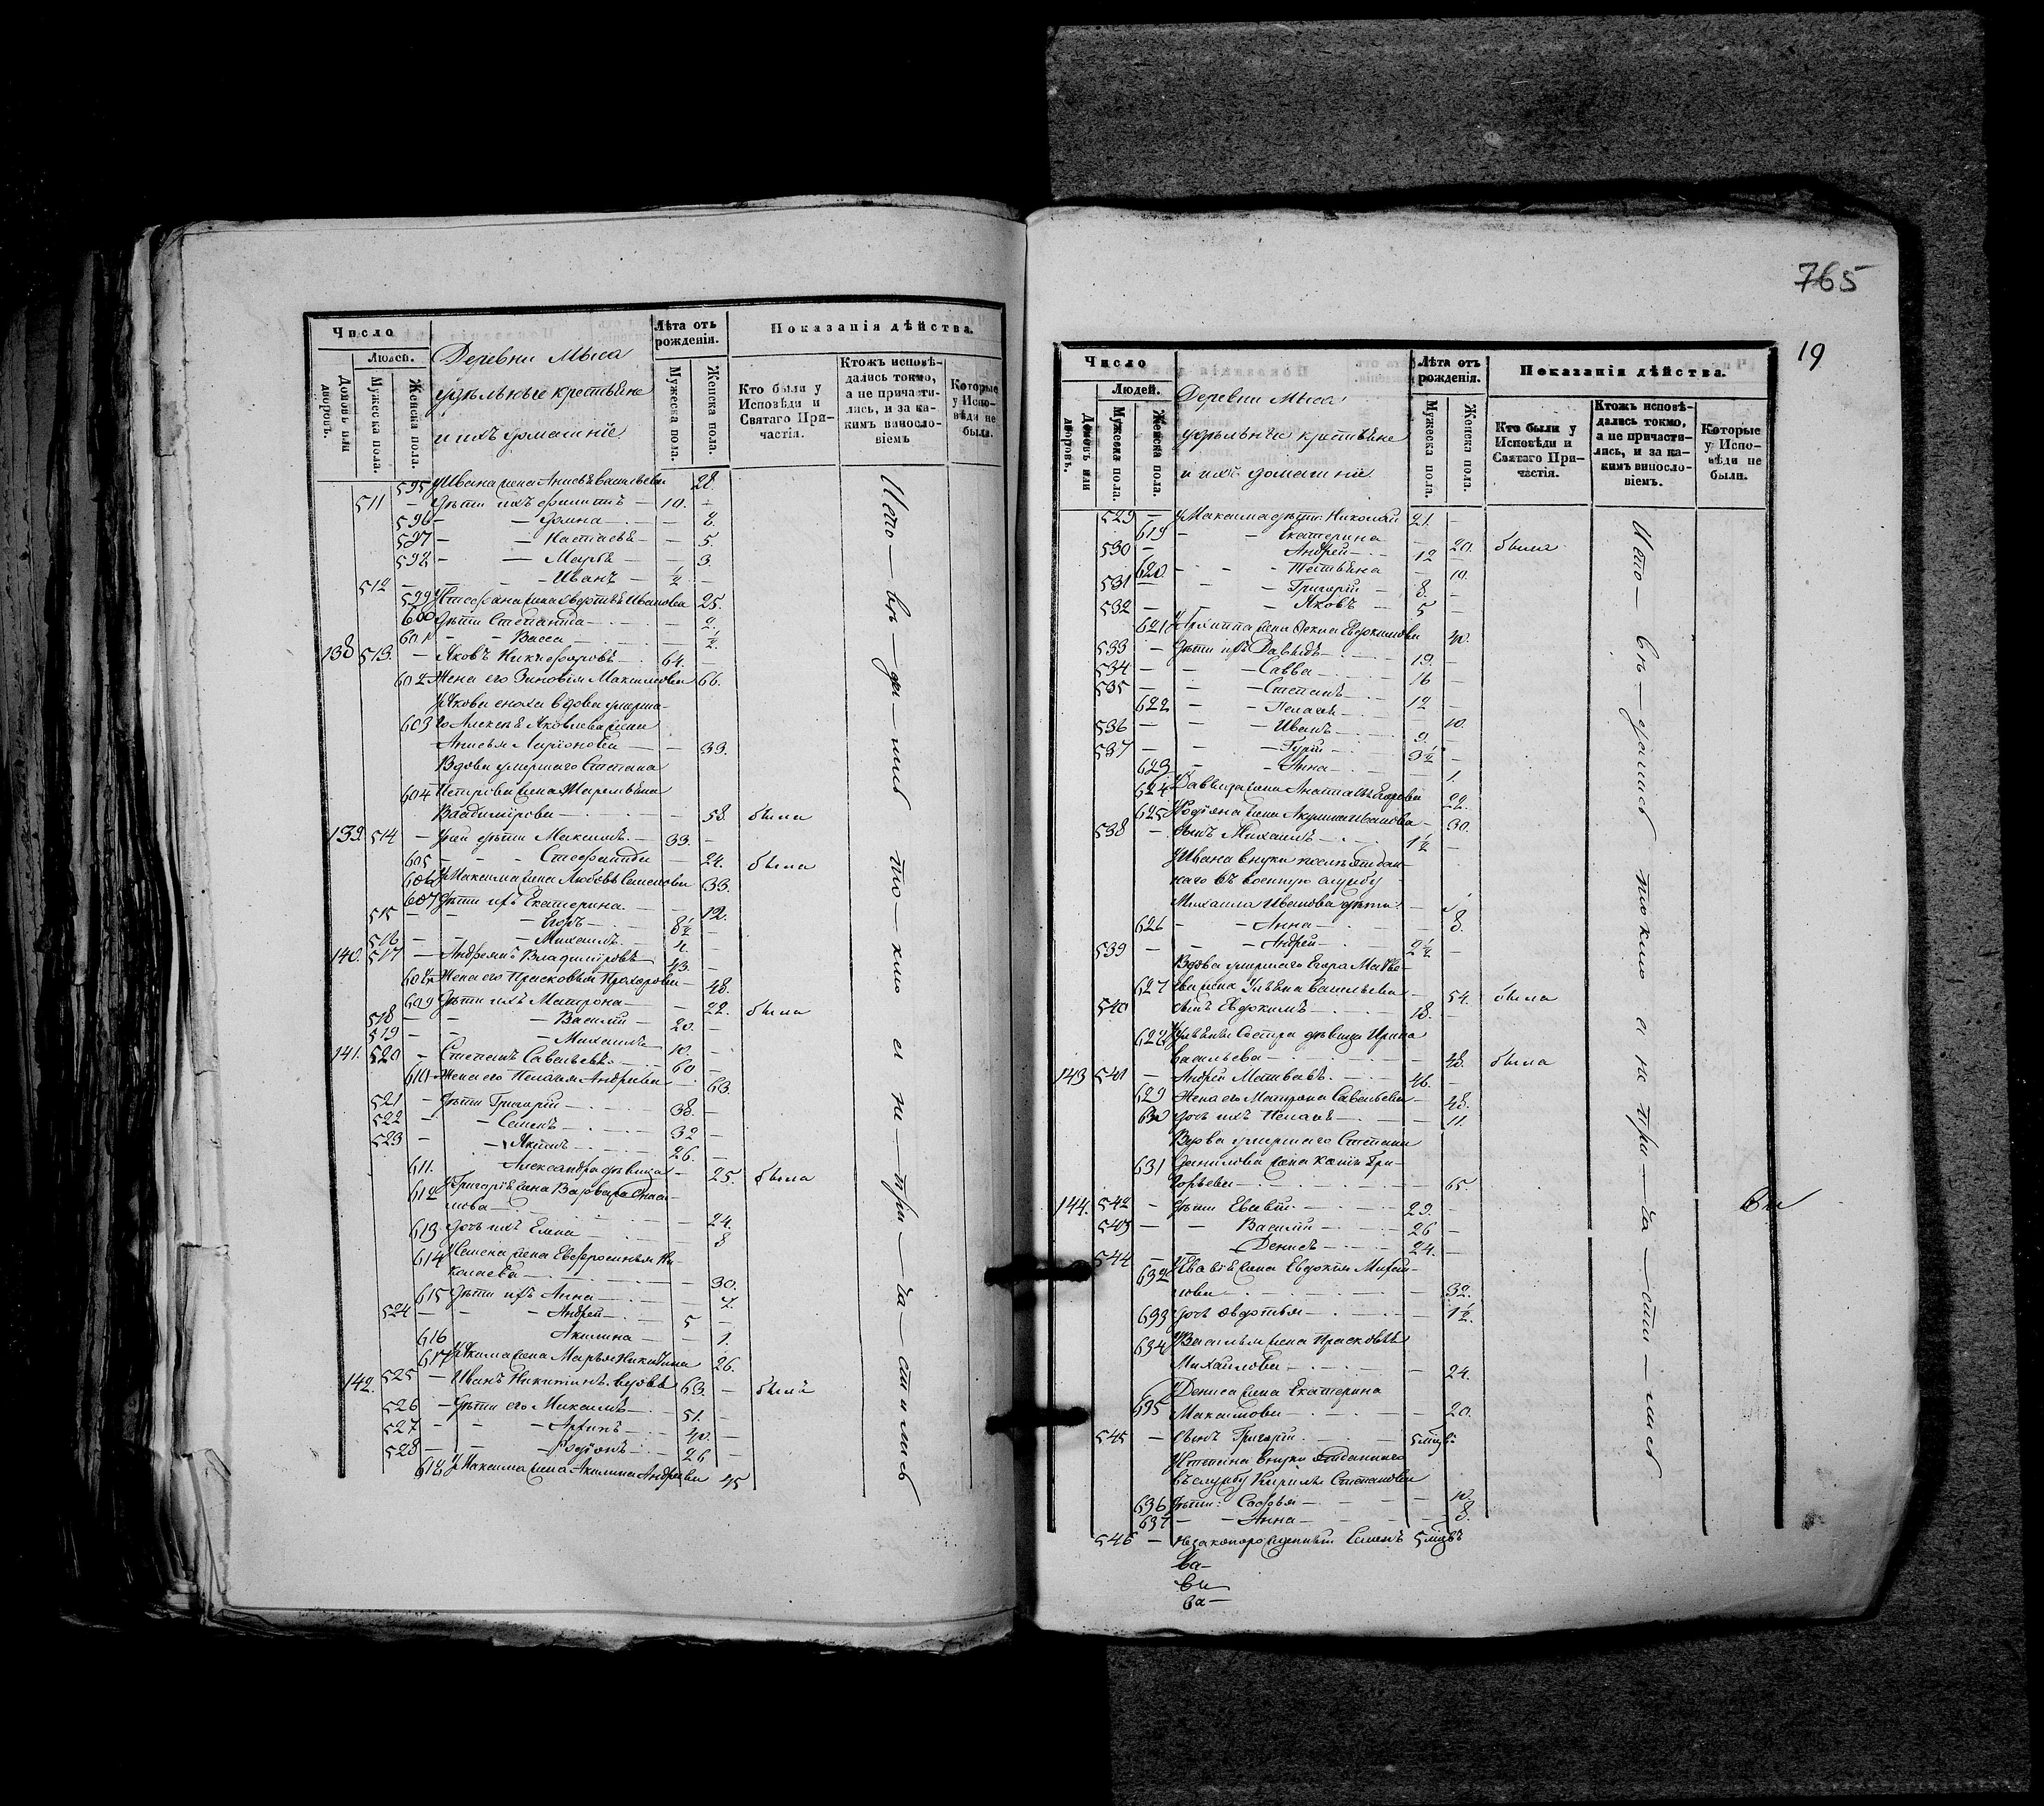 Число
Людей.
Домовъ или дворовъ.
Мужеска пола.
Женска пола.
Деревни Мыса
удѣльные крестьяне
и ихъ домашніе
Лѣта отъ рожденія.
Мужеска пола.
Женска пола.
Показанія дѣйства.
Кто были у Исповѣди и Святаго Причастія.
Ктожъ исповѣдались токмо, а не причастились, и за какимъ винословіемъ
Которые у Исповѣди не были.
595 у Ивана жена Анисья Васильева 28.
511 — Дѣти ихъ Филиппъ — 10. —
596 — — Домна — — 8.
597 — — Настасья — — 5.
598 — — Марья — — 3.
512 — — Иванъ — ½ —
599 у Стефана жена Авдотья Иванова 25.
600 Дѣти Степанида — — 2.
601 — — Васса — — ½
138 513. — Яковъ Никифоровъ — 64. —
602 Жена его Зиновія Максимова 66.
у Якова сноха вдова умерша-
603 го Алексѣя Яковлева жена
Анисья Ларионова — — 33.
Вдова умершаго Степана
604 Петрова жена Маремьяна
Владимірова — — 58. была
139. 514 — У ней дѣти Максимъ — 33. —
605 — — Стефанида — 24. была
606 у Максима жена Любовь Семенова 33.
607 Дѣти ихъ Екатерина — — 12.
515 — — Егоръ — 8½ —
516 — — Михаилъ — 4. —
140. 517 — Андреянъ Владиміровъ — 43. —
608 Жена его Прасковья Прохорова — 48.
609 Дѣти ихъ Матрона — — 22. была
518 — — Василій — 20. —
519 — — Михаилъ — 10. —
141. 520 — Степанъ Савельевъ — 60 —
610 Жена его Пелагея Андреева — 63.
521 — Дѣти Григорій — 38. —
522 — — Семенъ — 32 —
523 — — Якимъ — 26. —
611. Александра дѣвица — 25. была
612 у Григорія жена Варвара
— 24.
613 Дочь ихъ Елена — 8
614 у Семена жена Евфросинья Ни-
колаева — — 30.
615 Дѣти ихъ Анна — — 7.
524 — — Андрей — 5 —
616 Акилина — — 1.
617 у Якима жена Марья Никитина 26.
142. 525 — Иванъ Никитинъ вдовъ 63. — былъ
526 — Дѣти его Максимъ — 51. —
527 — — Архипъ — 40. —
528 — — Родіонъ — 26 —
618 у Максима жена Акилина Андреева 45
Испо — вѣ — да — лись то — кмо а не — при — ча — сти — лись
765
19
Число
Людей.
Домовъ или дворовъ.
Мужеска пола.
Женска пола.
Деревни Мыса
удѣльные крестьяне
и ихъ домашніе
Лѣта отъ рожденія.
Мужеска пола.
Женска пола.
Показанія дѣйства.
Кто были у Исповѣди и Святаго Причастія.
Ктожъ исповѣдались токмо, а не причастились, и за какимъ винословіемъ.
Которые у Исповѣди не были.
529 — у Максима дѣти: Николай 21. —
619 — — Екатерина — 20. была
530 — Андрей — 12 —
620. — — Татьяна — 10.
531 — — Григорій — 8. —
532 — — Яковъ — 5 —
621 у Архиппа жена Фекла Евдокимова 40.
533 — Дѣти ихъ Давыдъ — 19. —
534 — — Савва — 16 —
535 — — Степанъ — 12 —
622 — — Пелагея — 10.
536 — — Иванъ — 9. —
537 — — Гурій — 3½ —
623 — — Анна — — 1.
624 у Давыда жена Анастасья Егорова 22.
625 у Родіона жена Акулина Иванова — 30.
538 — сынъ Михаилъ — 1½ —
у Ивана внуки послѣ отдан-
наго въ военную службу
Михаила Иванова дѣти: —
626 — — Анна — — 8.
539 — — Андрей — 2½ —
Вдова умершаго Егора Матве-
627 ева жена Ульяна Васильева — 54. была
540 сынъ Евдокимъ — 18. —
628 у Ульяны сестра дѣвица Ирина
Васильева — — 48. была
143 541 — Андрей Матвѣевъ — 46. —
629 Жена его Матрона Савельева — 48.
630 Дочь ихъ Пелагея — — 11.
Вдова умершаго Степана
631 Данилова жена Ксенія Гри-
горьева — — 65.
144. 542 — Дѣти Евавтій — 29. —
543 — — Василій — 26 —
544 — — Денисъ — 24. —
632 жена Евдокія Михай-
лова — — 32.
633 дочь Авдотья — — 1½.
634 у Василья жена Прасковья
Михайлова — — 24.
у Дениса жена Екатерина
635 Максимова — — 20.
545 — сынъ Григорій — 5 мцвъ
у Ксеніи внуки отданнаго
въ службу Кирила Степанова
636 дѣти: Софья — — 10.
637 — — Анна — — 8.
546 — незаконорожденный Семенъ 5 мцвъ
Испо — вѣ — дались токмо а не при — ча — сти — лись